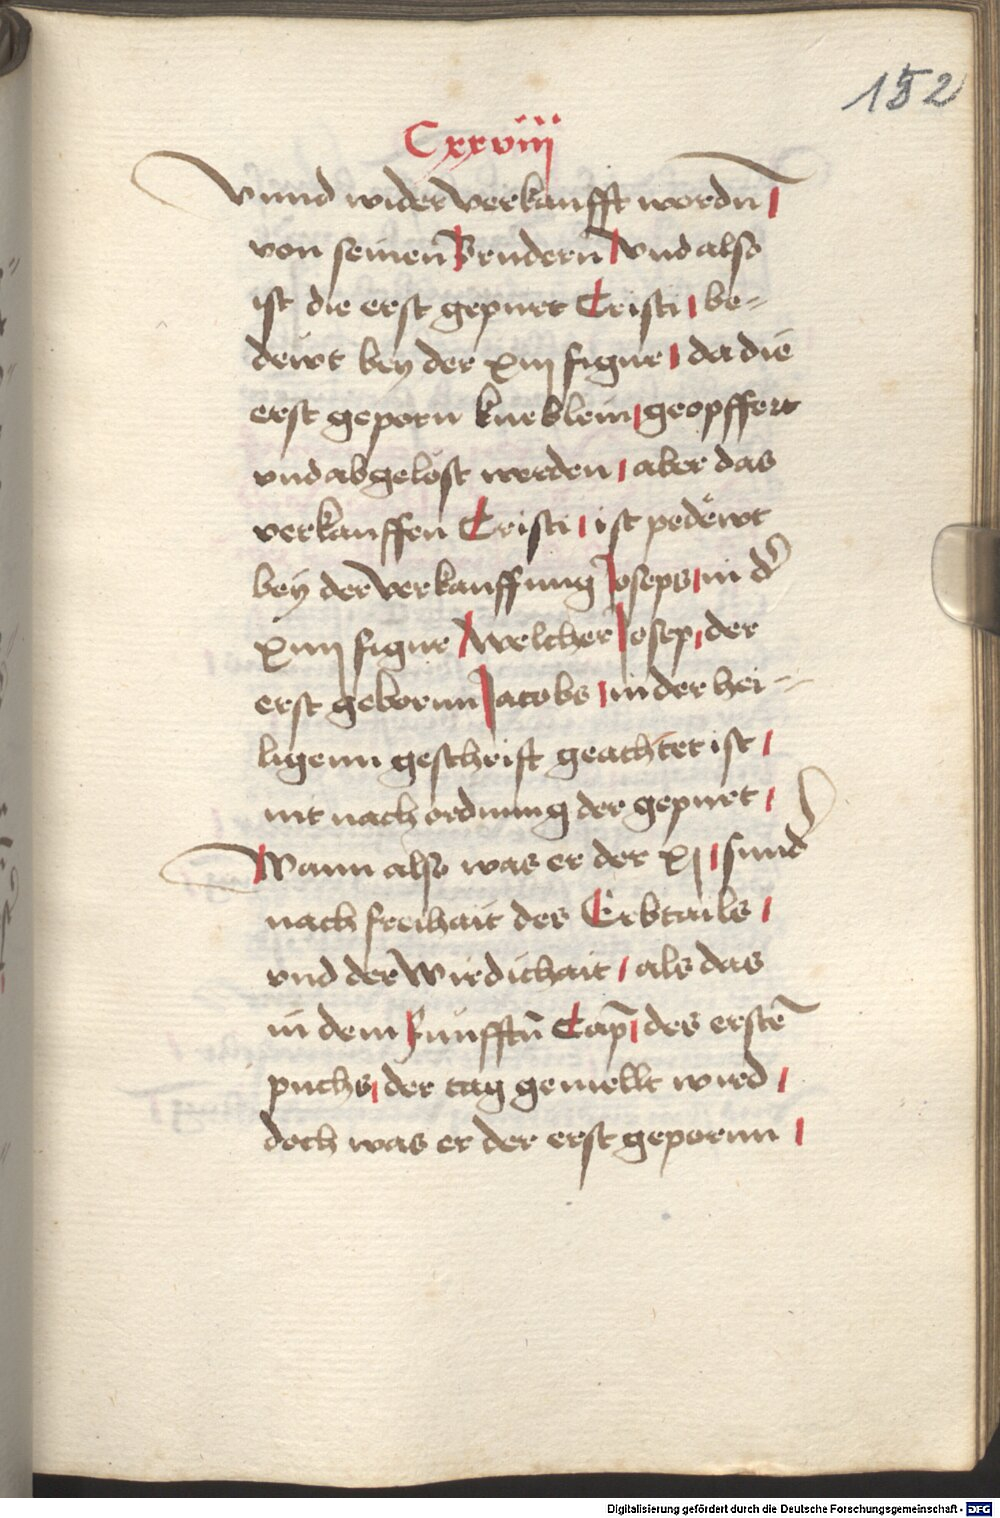 152
Cxxviij
Vnnd wider verkaufft wordn̄ |
von seinen̄ Brudern̄ | vnd also
ist die erst gepurt Cristi | be-
dewt bey der xiij figur | da die
erst geporn kneblein | geopffert
vnd abgelöst werden | aber das
verkauffen Cristi | ist pedëwt
bey der verkauffung Joseps | in d̕
xiiij figur | welcher Josep | der
erst gebornn Jacobs | in der hei-
ligenn geschrift geachtet ist |
nit nach ordnung der gepurt |
Wann also was er der xj | sund̕
nach freihait des Erbtails |
vnd der wirdichait | als das
in dem Funfftn̄ Cap̄ | des erstē
puchs | der tag gemellt wird |
doch was er der erst gepornn |
Digitalisierung gefördert durch die Deutsche Forschungsgemeinschaft - DFG